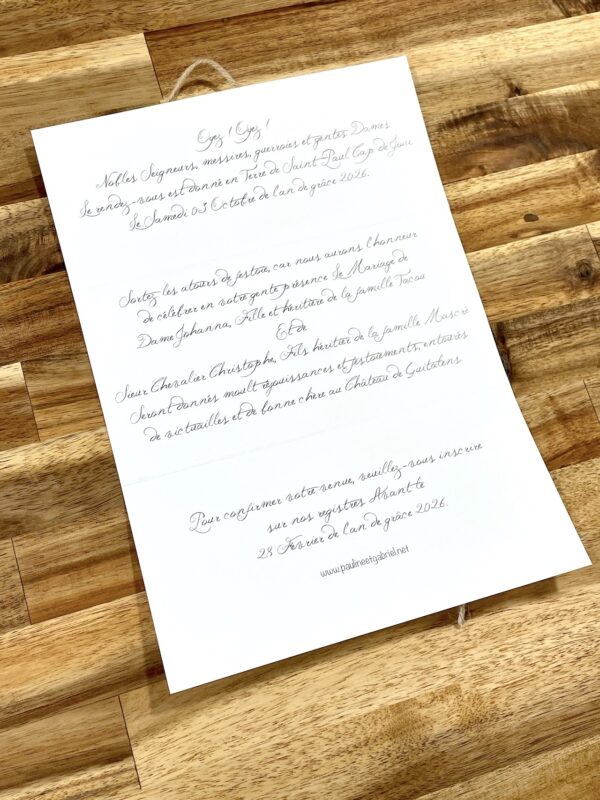 Oyez ! Oyez !
Nobles Seigneurs, messires, guerroies et gentes Dames
Le rendez-vous est donné en Terre de Saint-Paul Cap de Joux
Le Samedi 03 Octobre de l'an de grâce 2026.
Sortez les atours de festoie, car nous aurons l'honneur
de célébrer en votre gente présence Le Mariage de
Dame Johanna, Fille et héritière de la famille Tacou
Et de
Sieur Chevalier Christophe, Fils héritier de la famille Mascré
Seront donnés moult réjouissances et festoiements, entourés
de victuailles et de bonne chère au Château de Guitalens
Pour confirmer votre venue, veuillez-vous inscrire
sur nos registres Avant le
28 Février de l'an de grâce 2026.
www.paulineetgabriel.net